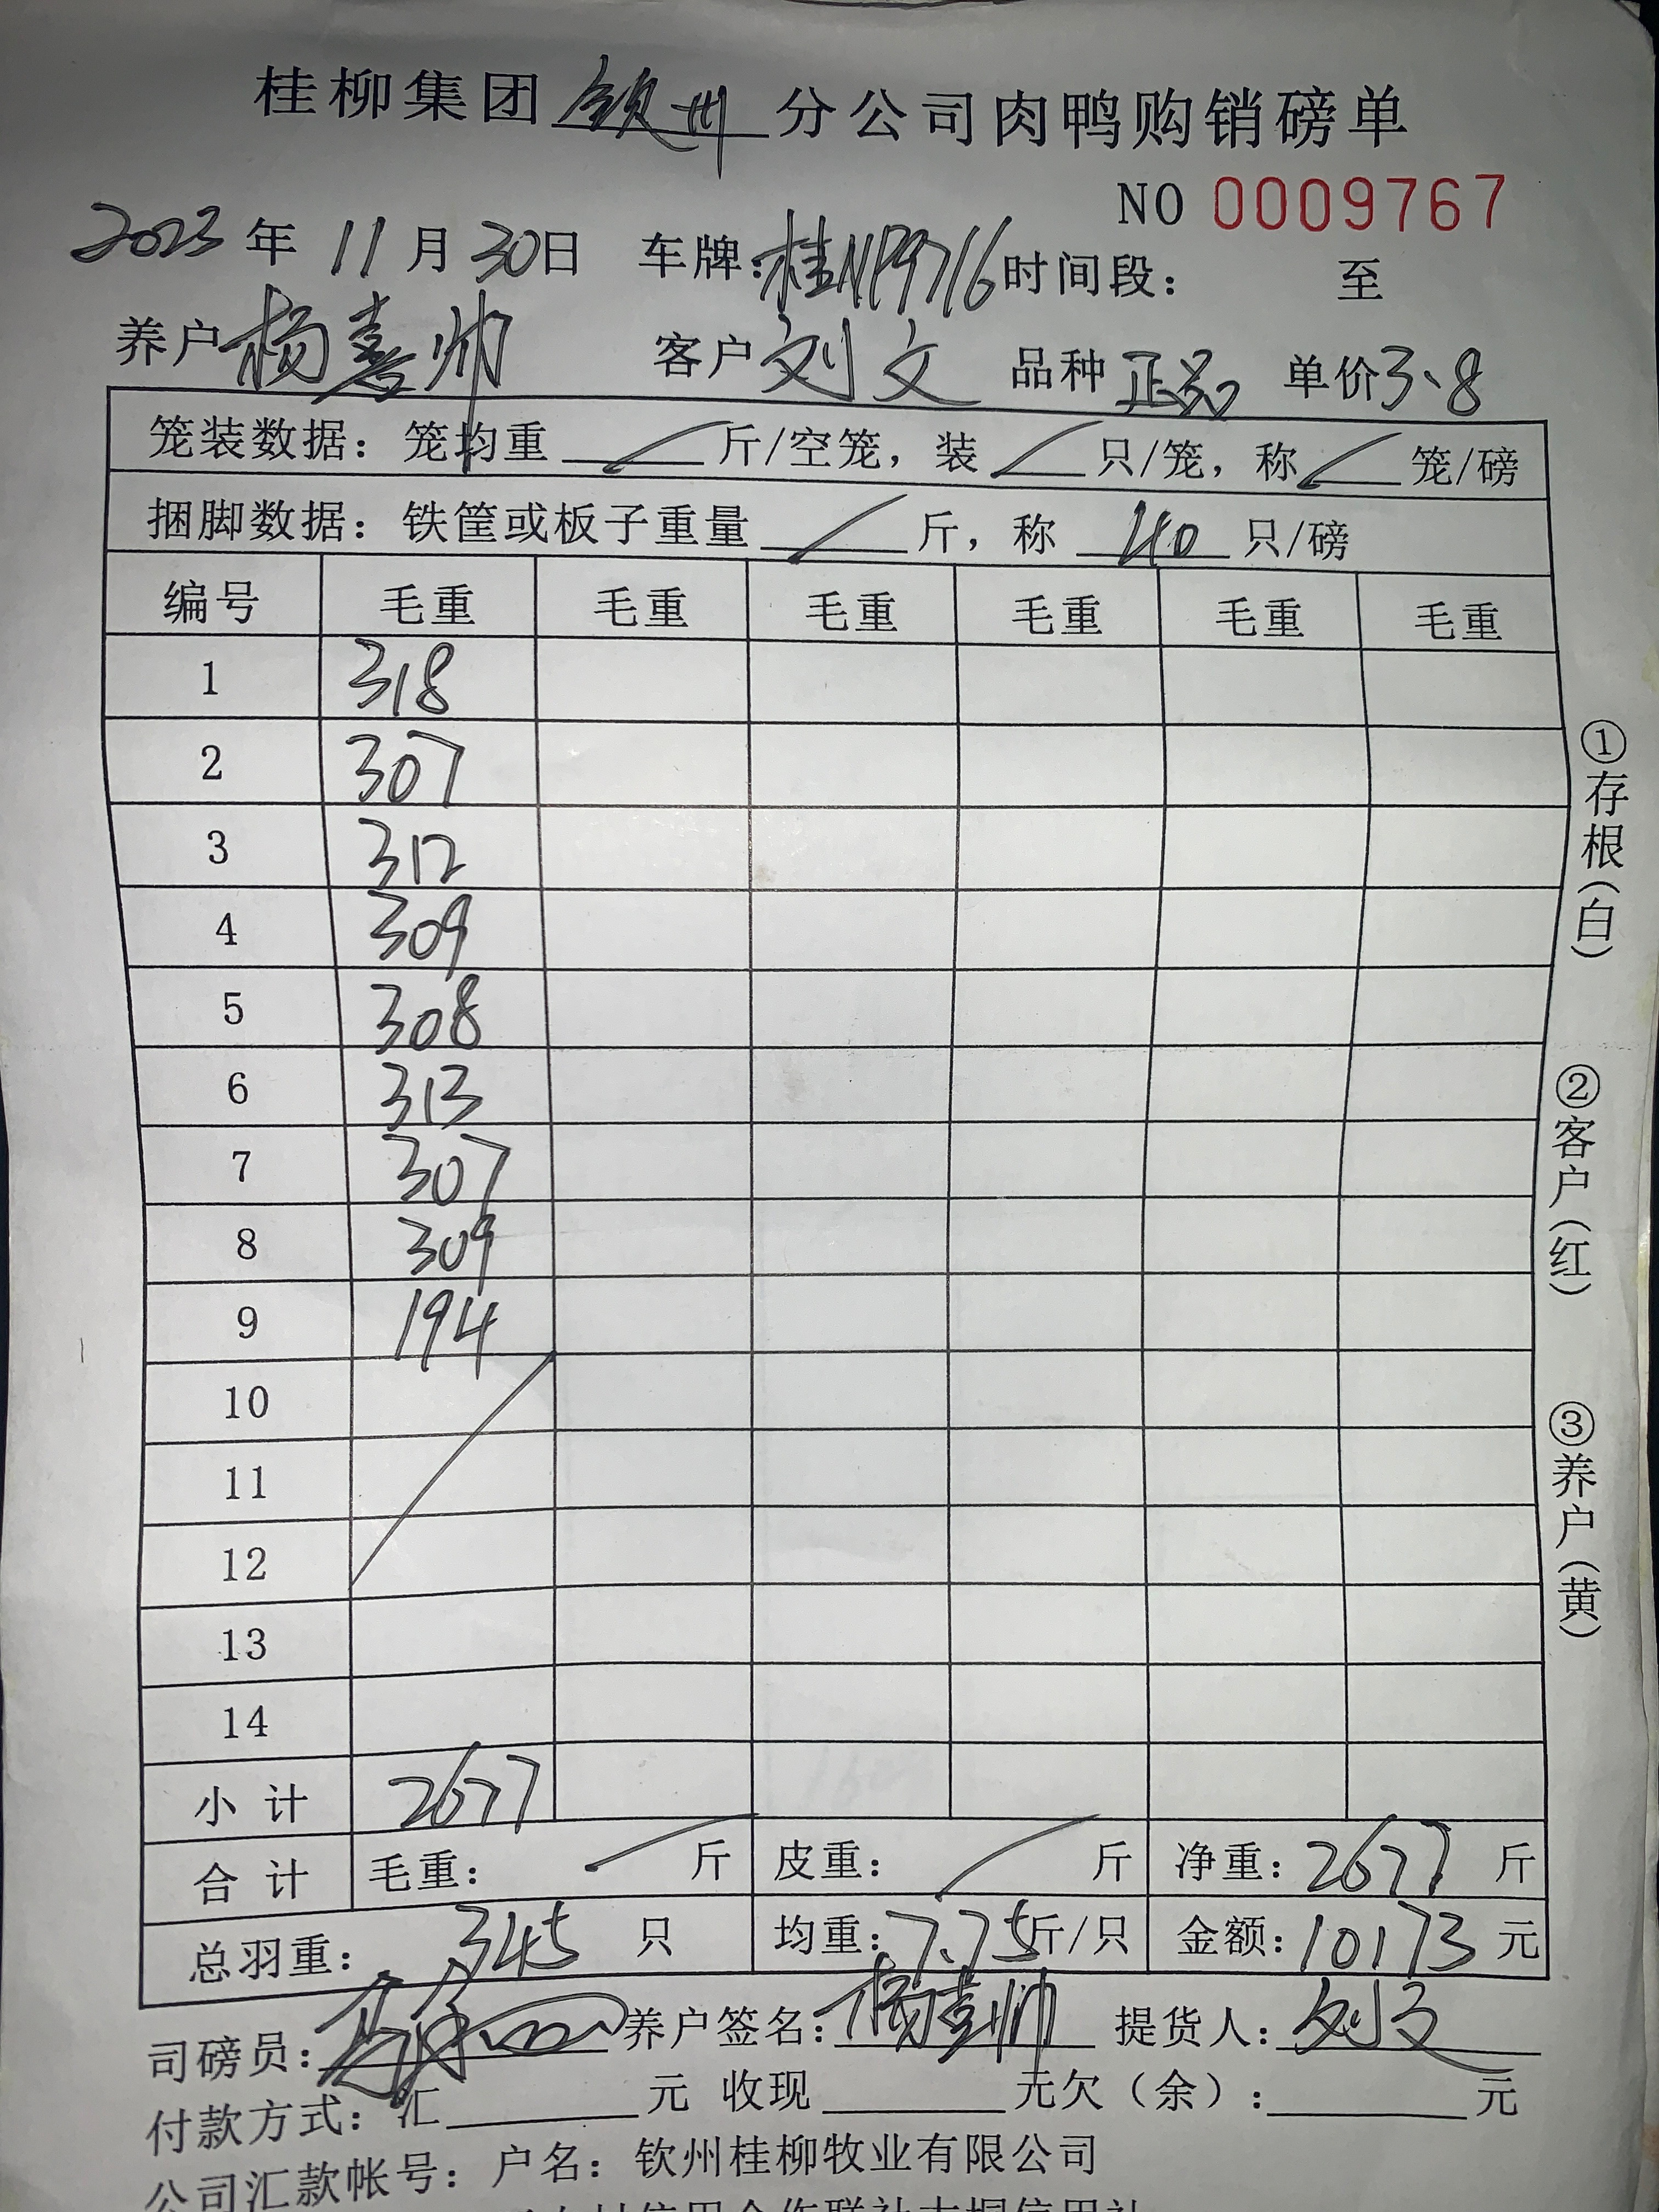 桂柳集团 钦州 分公司肉鸭购销磅单
NO 0009767
2023 年 11 月 30 日 车牌：桂NP9716 时间段： 至
养户 杨喜帅 客户 刘文 品种 正品 单价 3、8
笼装数据：笼均重 / 斤/空笼，装 / 只/笼，称 / 笼/磅
捆脚数据：铁筐或板子重量 / 斤，称 40 只/磅
编号 毛重 毛重 毛重 毛重 毛重 毛重
1 318
2 307
3 312
4 309
5 308
6 313
7 307
8 309
9 194
10
11
12
13
14
小计 2677
合计 毛重： / 斤 皮重： / 斤 净重：2677 斤
总羽重： 345 只 均重：7.75 斤/只 金额：10173 元
司磅员： 养户签名：杨喜帅 提货人：刘文
付款方式：汇 元 收现 元欠（余）： 元
公司汇款帐号：户名：钦州桂柳牧业有限公司
①存根（白）
②客户（红）
③养户（黄）